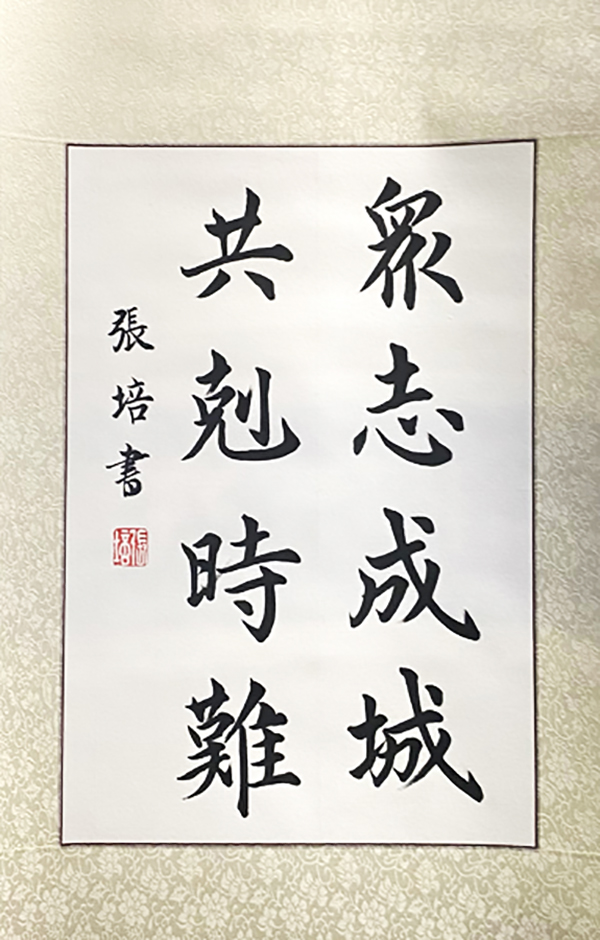 眾志成城
共剋時難
張培書
張培